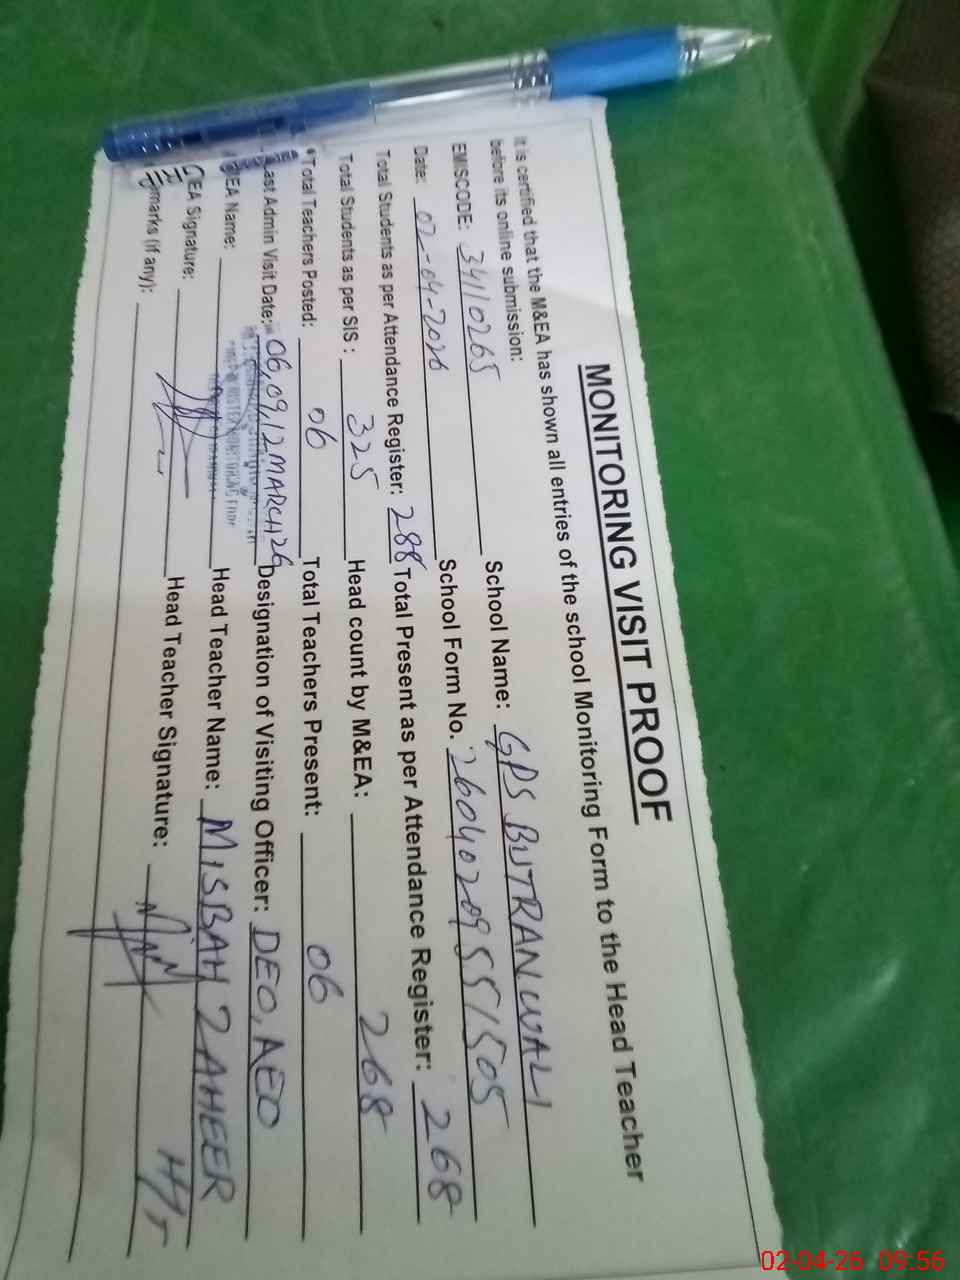 MONITORING VISIT PROOF
It is certified that the M&EA has shown all entries of the school Monitoring Form to the Head Teacher
before its online submission:
EMISCODE: 34110265 School Name: GPS BUTRANWALI
Date: 02-04-2026 School Form No. 26040209551505
Total Students as per Attendance Register: 288 Total Present as per Attendance Register: 268
Total Students as per SIS: 325 Head count by M&EA: 268
Total Teachers Posted: 06 Total Teachers Present: 06
Last Admin Visit Date: 06,09,12 MARCH 26 Designation of Visiting Officer: DEO, AEO
EA Name: Head Teacher Name: MISBAH ZAHEER
EA Signature: Head Teacher Signature:
marks (if any):
02-04-26 09:56